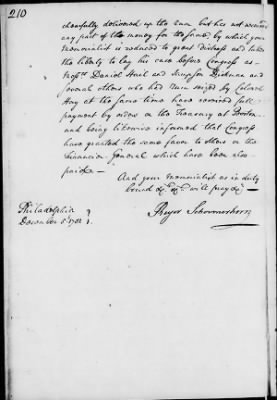 210
chearfully delivered up the Rum but has not received
any part of the money for the same, by which your
memorialist is reduced to great distress and takes
the liberty to lay his case before Congress as
Daniel Hail and Simpson Dickman and
several others who had Rum seized by Colonel
Hay at the same time have received full
payment by orders on the Treasury at Boston
and being likewise informed that Congress
have granted the same favor to others on the
Financier General which have been also
paid —
And your memorialist as in duty
bound &c. &c. will pray &c. —
Philadelphia
December 5th 1782
Ryer Schermerhorn